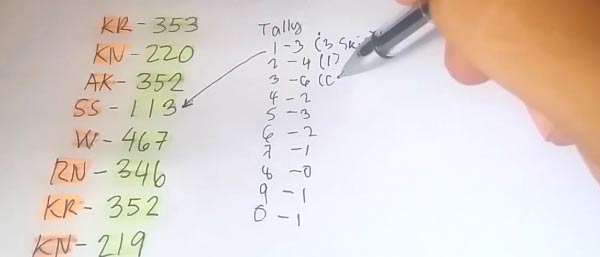 KR - 353
KN - 220
AK - 352
SS - 113
W - 467
RN - 346
KR - 352
KN - 219
Tally
1 - 3 (3
2 - 4 (1)
3 - 6 (
4 - 2
5 - 3
6 - 2
7 - 1
8 - 0
9 - 1
0 - 1